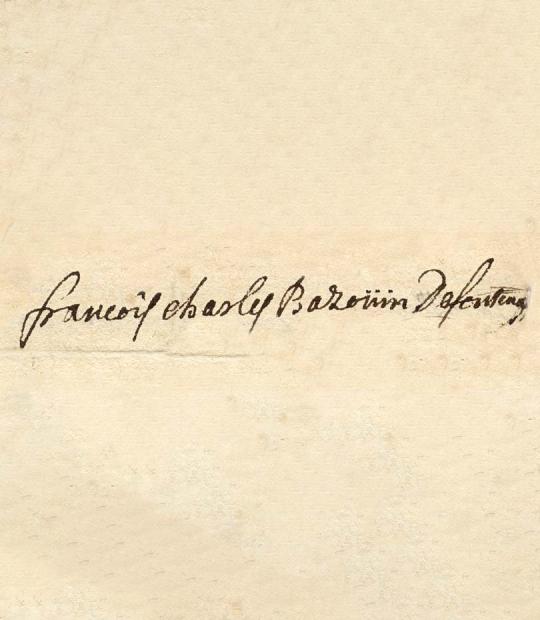 francois charles Bazoüin Defontenay